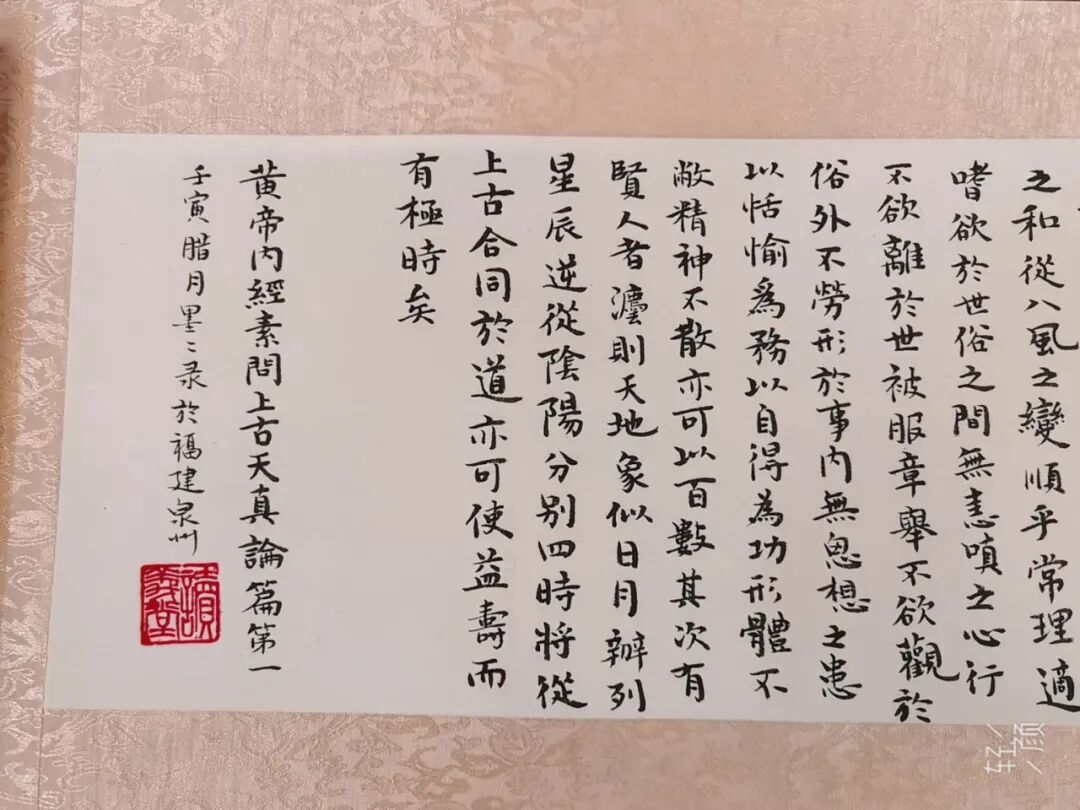 之和從八風之變順乎常理適
嗜欲於世俗之間無恚嗔之心行
不欲離於世被服章舉不欲觀於
俗外不勞形於事內無思想之患
以恬愉為務以自得為功形體不
敝精神不散亦可以百數其次有
賢人者灋則天地象似日月辦列
星辰逆從陰陽分別四時將從
上古合同於道亦可使益壽而
有極時矣
黃帝內經素問上古天真論篇第一
壬寅腊月墨〻录於福建泉州
轻颜